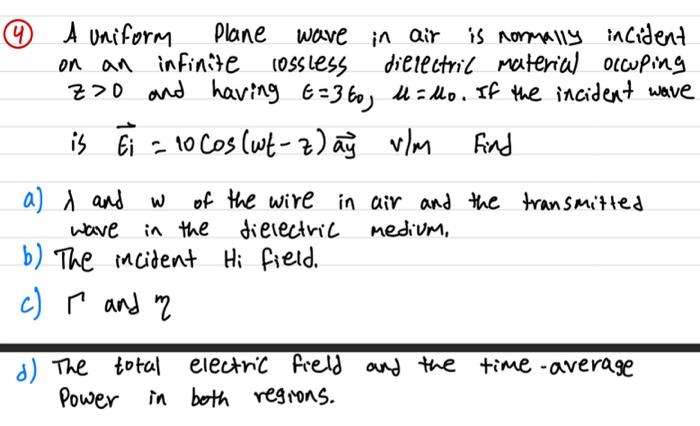 ④ A uniform Plane wave in air is normally incident
on an infinite lossless dielectric material occuping
z>0 and having ϵ=3ϵ₀, μ=μ₀. If the incident wave
is E⃗i = 10 Cos(wt-z) a⃗y v/m Find
a) λ and w of the wire in air and the transmitted
wave in the dielectric medium,
b) The incident Hi field.
c) Γ and η
d) The total electric field and the time-average
Power in both regions.